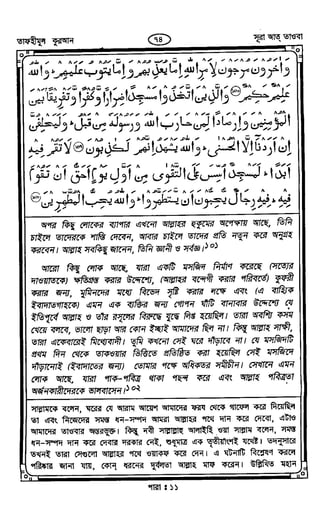 তাফহীমুল কুরআন
৭৪
সূরা আত্ তাওবা
وَاٰخَرُوْنَ مُرْجَوْنَ لِاَمْرِ اللّٰهِ اِمَّا يُعَذِّبُهُمْ وَاِمَّا يَتُوْبُ عَلَيْهِمْ ۚ وَاللّٰهُ
عَلِيْمٌ حَكِيْمٌ ﴿۱۰۶﴾ وَالَّذِيْنَ اتَّخَذُوْا مَسْجِدًا ضِرَارًا وَّكُفْرًا وَّتَفْرِيْقًا بَيْنَ
الْمُؤْمِنِيْنَ وَاِرْصَادًا لِّمَنْ حَارَبَ اللّٰهَ وَرَسُوْلَهٗ مِنْ قَبْلُ ۚ وَلَيَحْلِفُنَّ
اِنْ اَرَدْنَآ اِلَّا الْحُسْنٰى ۚ وَاللّٰهُ يَشْهَدُ اِنَّهُمْ لَكٰذِبُوْنَ ﴿۱۰۷﴾ لَا تَقُمْ فِيْهِ
اَبَدًا ۚ لَمَسْجِدٌ اُسِّسَ عَلَى التَّقْوٰى مِنْ اَوَّلِ يَوْمٍ اَحَقُّ اَنْ تَقُوْمَ
فِيْهِ ۚ فِيْهِ رِجَالٌ يُّحِبُّوْنَ اَنْ يَّتَطَهَّرُوْا ۚ وَاللّٰهُ يُحِبُّ الْمُطَّهِّرِيْنَ ﴿۱۰۸﴾
অপর কিছু লোকের ব্যাপার এখনো আল্লাহর হুকুমের অপেক্ষায় আছে, তিনি
চাইলে তাদেরকে শাস্তি দেবেন, আবার চাইলে তাদের প্রতি নতুন করে অনুগ্রহ
করবেন। আল্লাহ সবকিছু জানেন, তিনি জ্ঞানী ও সর্বজ্ঞ।১০১
আরো কিছু লোক আছে, যারা একটি মসজিদ নির্মাণ করেছে (সত্যের
দাওয়াতকে) ক্ষতিগ্রস্ত করার উদ্দেশ্যে, (আল্লাহর বন্দেগী করার পরিবর্তে) কুফরী
করার জন্য, মুমিনদের মধ্যে বিভেদ সৃষ্টি করার লক্ষে এবং (এ বাহ্যিক
ইবাদাতগাহকে) এমন এক ব্যক্তির জন্য গোপন ঘাঁটি বানাবার উদ্দেশ্যে যে
ইতিপূর্বে আল্লাহ ও তাঁর রসূলের বিরুদ্ধে যুদ্ধে লিপ্ত হয়েছিল। তারা অবশ্যি কসম
খেয়ে বলবে, ভালো ছাড়া আর কোন ইচ্ছাই আমাদের ছিল না। কিন্তু আল্লাহ সাক্ষী,
তারা একেবারেই মিথ্যেবাদী। তুমি কখনো সেই ঘরে দাঁড়াবে না। যে মসজিদটি
প্রথম দিন থেকে তাকওয়ার ভিত্তিতে প্রতিষ্ঠিত করা হয়েছিল সেই মসজিদে
দাঁড়ানোই (ইবাদাতের জন্য) তোমার পক্ষে অধিকতর সমীচীন। সেখানে এমন
লোক আছে, যারা পাক-পবিত্র থাকা পছন্দ করে এবং আল্লাহ পবিত্রতা
অর্জনকারীদেরকে ভালবাসেন।১০২
সাল্লামকে বলেন, ঘরের যে আরাম আয়েশ আমাদের ফরয থেকে গাফেল করে দিয়েছিল
তা এবং নিজেদের সমস্ত ধন-সম্পদ আমরা আল্লাহর পথে দান করে দেবো, এটাও
আমাদের তাওবার অন্তরভুক্ত। কিন্তু নবী সাল্লাল্লাহু আলাইহি ওয়া সাল্লাম বলেন, সমস্ত
ধন-সম্পদ দান করে দেবার দরকার নেই, শুধুমাত্র এক তৃতীয়াংশই যথেষ্ট। তদনুসারে
তখনই তারা সেগুলো আল্লাহর পথে ওয়াকফ করে দেন। এ ঘটনাটি বিশ্লেষণ করলে
পরিষ্কার জানা যায়, কোন্ ধরনের দুর্বলতা আল্লাহ মাফ করেন। উল্লিখিত মহান
পারা ঃ ১১